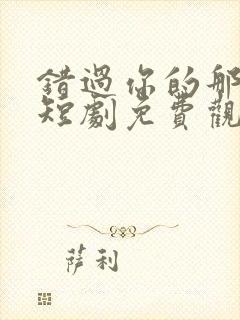 錯過你的那
短劇免費觀
萨利